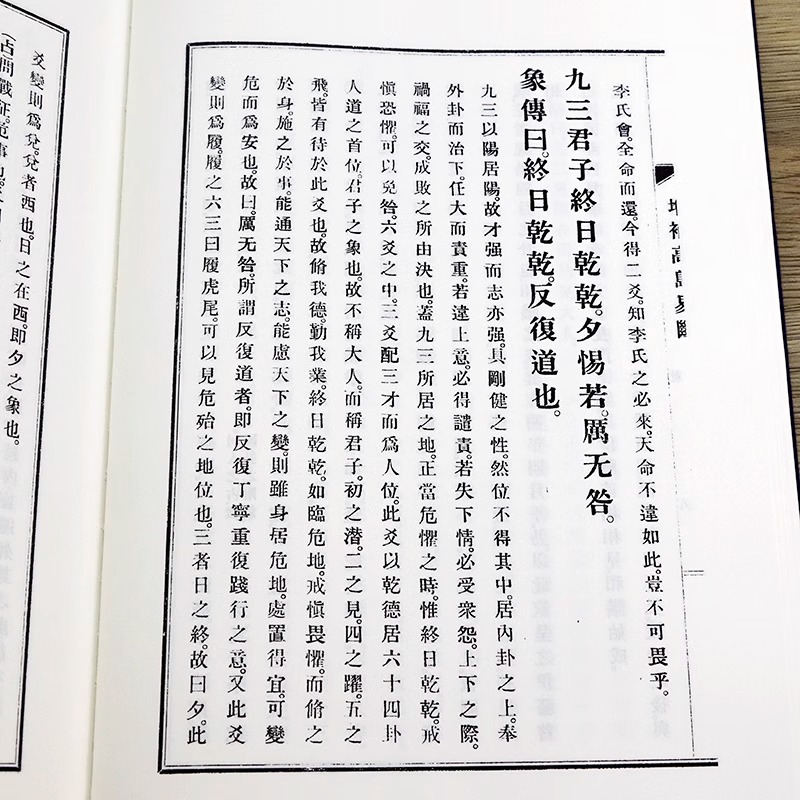 增補高島易斷
李氏會。全命而還。今得二爻。知李氏之必來。天命不違如此。豈不可畏乎。
九三君子終日乾乾。夕惕若。厲无咎。
象傳曰。終日乾乾。反復道也。
九三以陽居陽。故才强而志亦强。具剛健之性。然位不得其中。居內卦之上。奉
外卦而治下。任大而責重。若違上意。必得譴責。若失下情。必受衆怨。上下之際。
禍福之交。成敗之所由決也。蓋九三所居之地。正當危懼之時。惟終日乾乾。戒
愼恐懼。可以免咎。六爻之中。三爻配三才而爲人位。此爻以乾德居六十四卦
人道之首位。君子之象也。故不稱大人。而稱君子。初之潛。二之見。四之躍。五之
飛。皆有待於此爻也。故脩我德。勤我業。終日乾乾。如臨危地。戒愼畏懼。而脩之
於身。施之於事。能通天下之志。能慮天下之變。則雖身居危地。處置得宜。可變
危而爲安也。故曰。厲无咎。所謂反復道者。即反復丁寧重復踐行之意。又此爻
變則爲履。履之六三曰履虎尾。可以見危殆之地位也。三者日之終。故曰夕。此
爻變則爲兌。兌者西也。日之在西。即夕之象也。
(占問戰征。